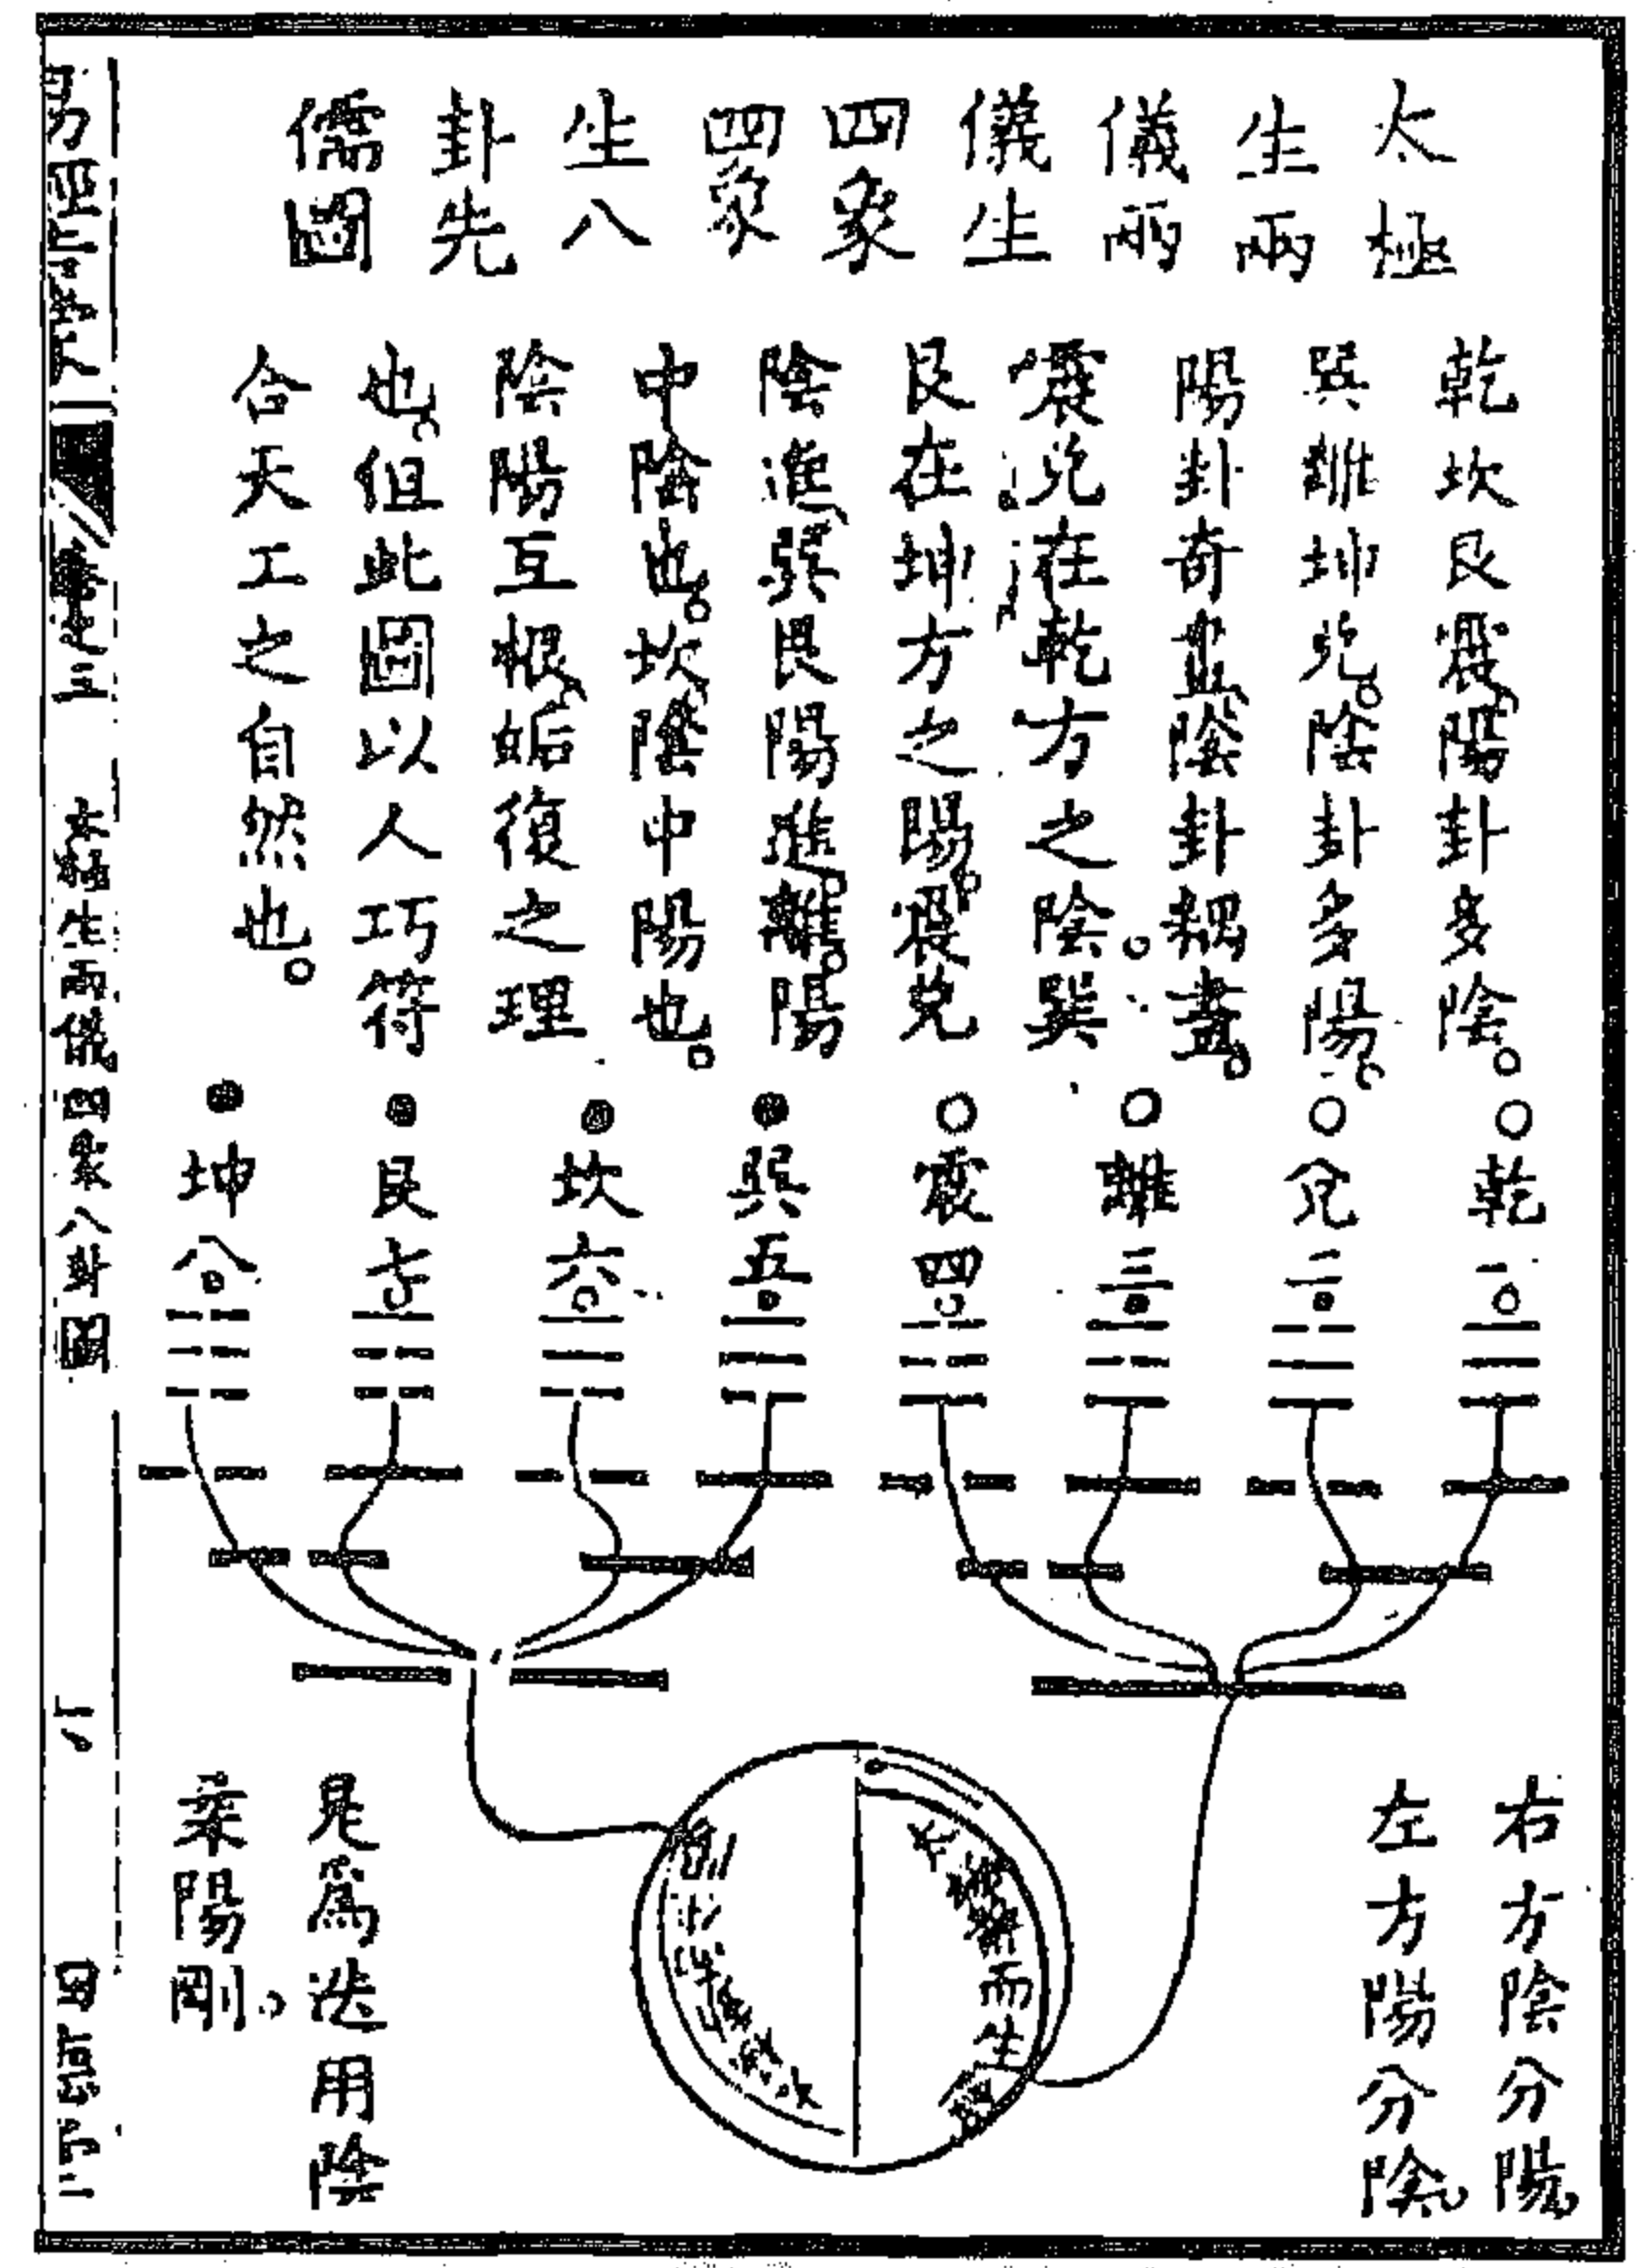 太極
生兩
儀兩
儀生
四象
四象
生八
卦先
儒圖
乾坎艮震、陽卦多陰。
巽離坤兌。陰卦多陽。
陽卦奇盡、陰卦耦盡。
震兌在乾方之陰。巽
艮在坤方之陽。震兌
陰進、巽艮陽進。離。陽
中陰也。坎、陰中陽也。
陰陽互根、姤復之理
也。但此圖以人巧符
合天工之自然也。
○乾一。
○兌二。
○離三。
○震四。
●巽五。
●坎六。
●艮七。
●坤八。
右方陰分陽。
左方陽分陰。
而生
是為法用陰
乘陽剛。
太極生兩儀四象八卦圖